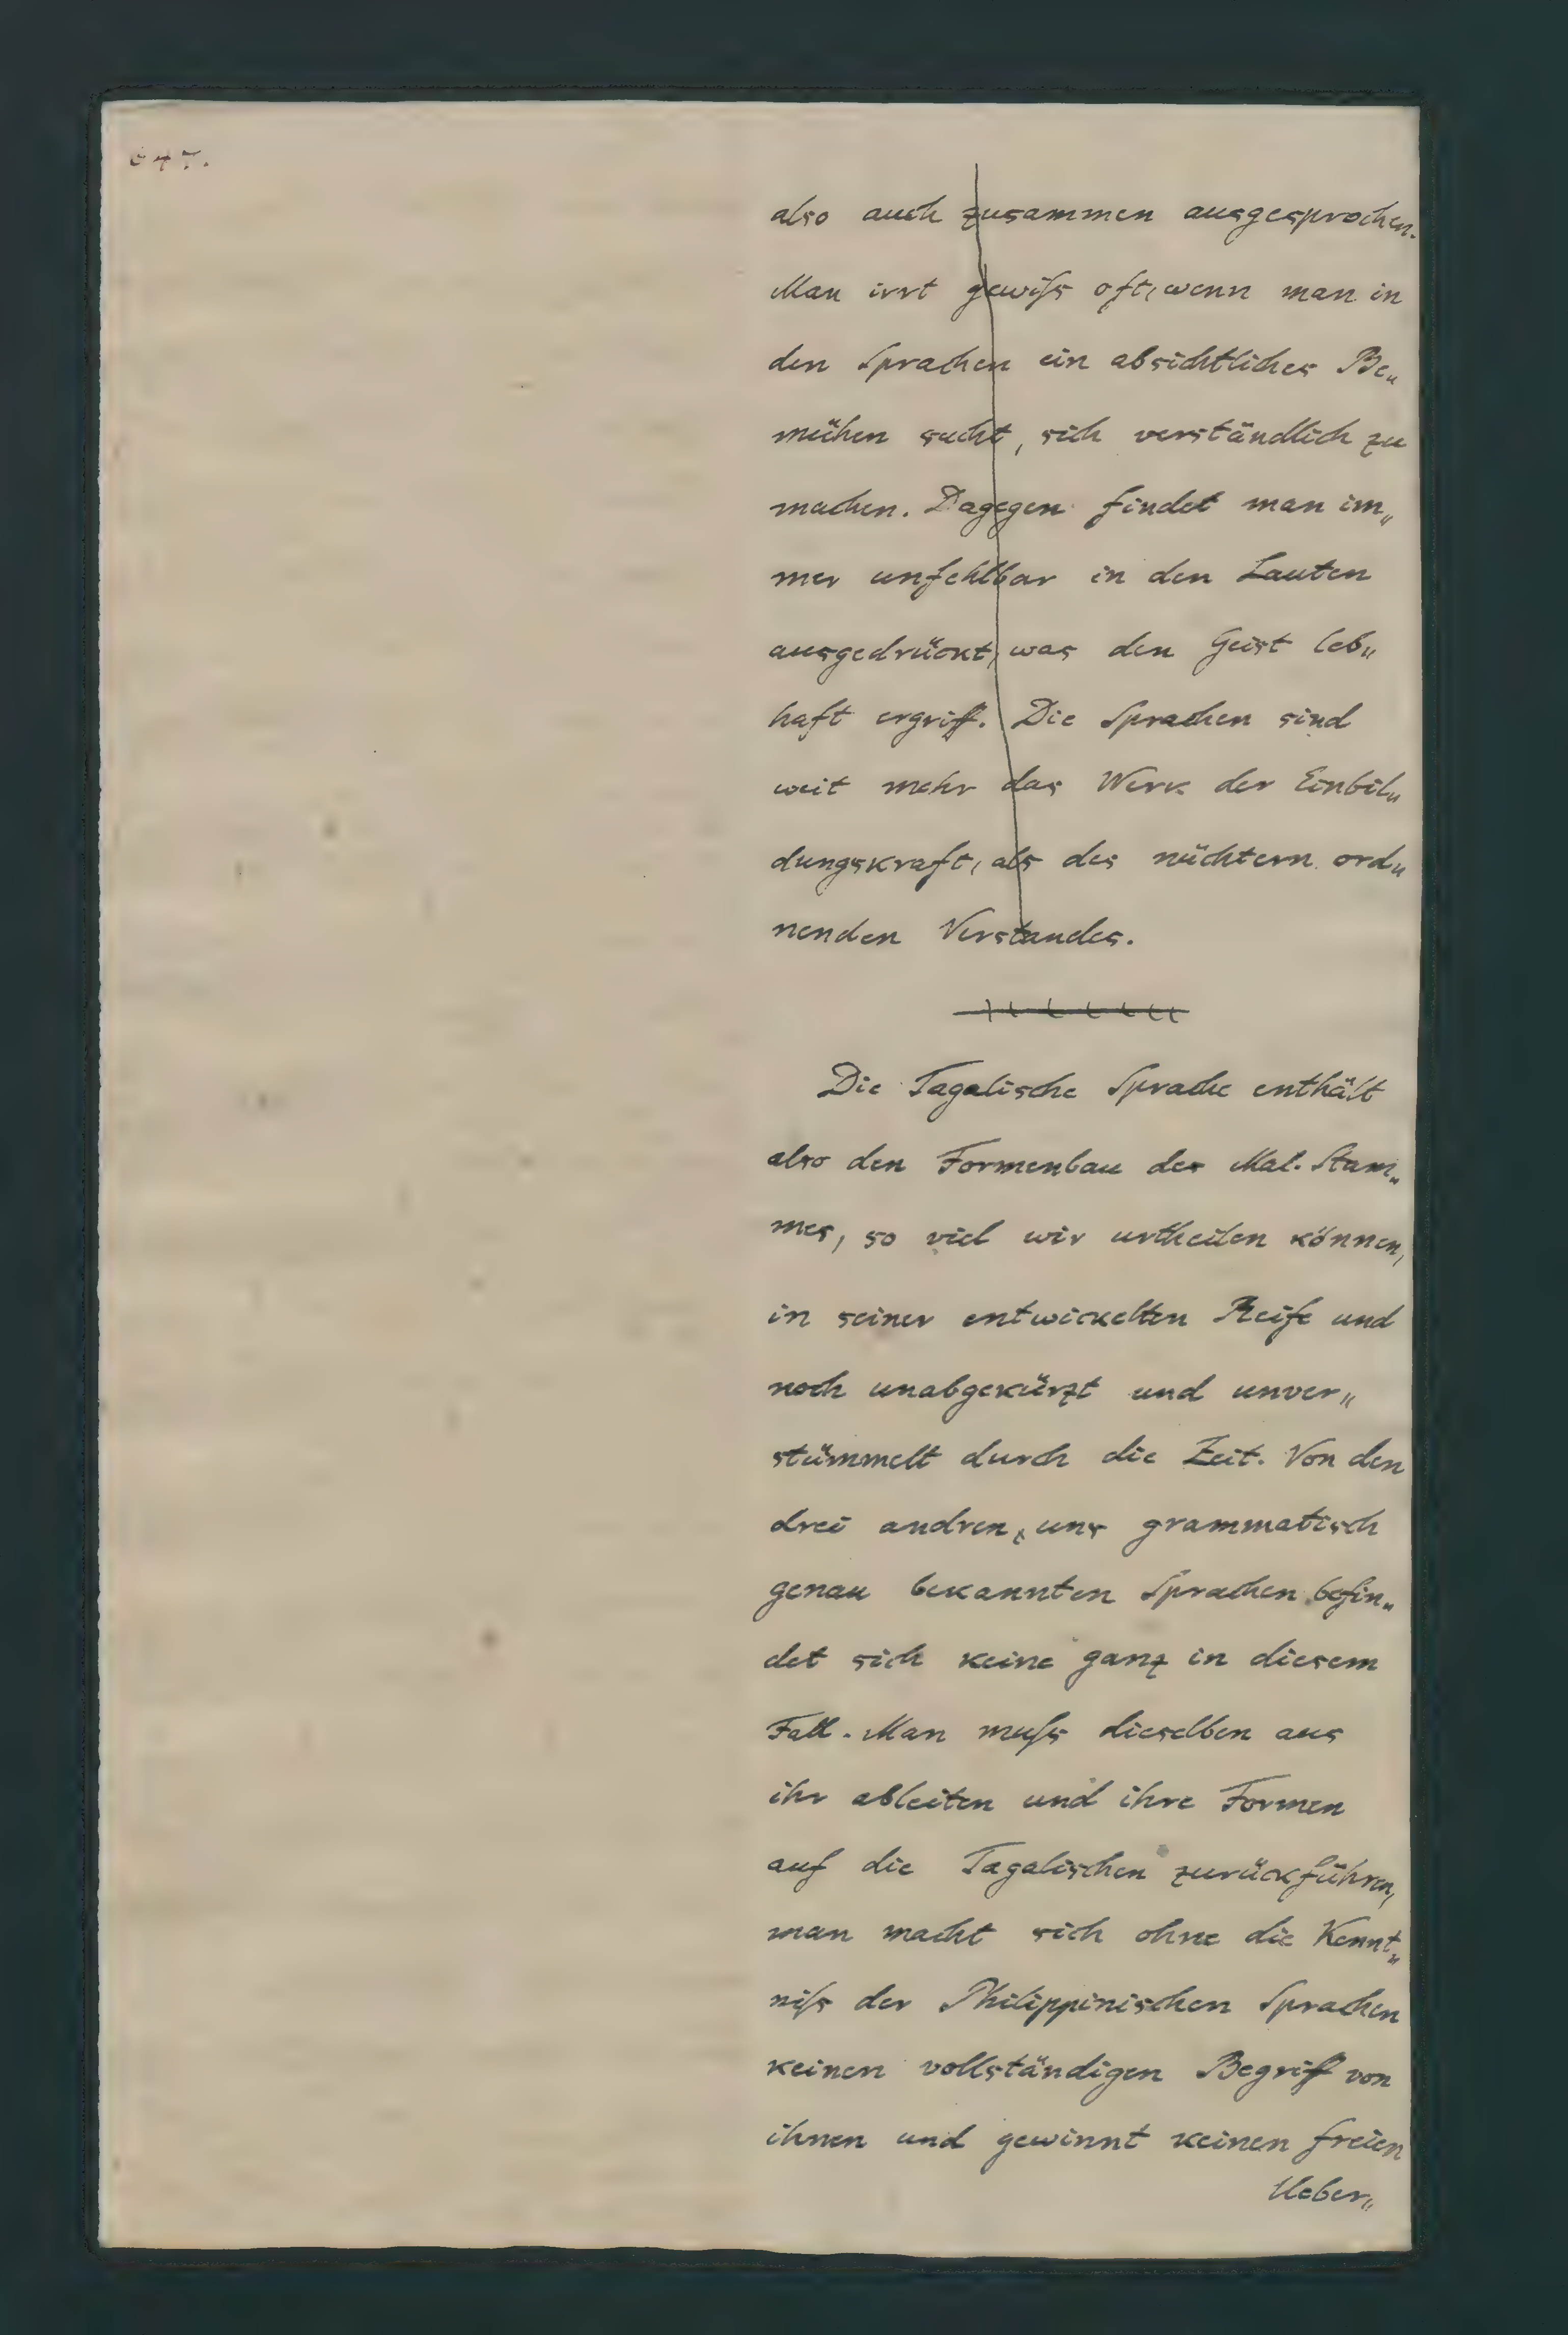 647.
also auch zusammen ausgesprochen.
Man irrt gewiſs oft, wenn man in
den Sprachen ein absichtliches Be„
mühen sucht, sich verständlich zu
machen. Dagegen findet man im„
mer unfehlbar in den Lauten
ausgedrückt, was den Geist leb„
haft ergriff. Die Sprachen sind
weit mehr das Werk der Einbil„
dungskraft, als des nüchtern ord„
nenden Verstandes.
Die Tagalische Sprache enthält
also den Formenbau des Mal. Stam„
mes, so viel wir urtheilen können,
in seiner entwickelten Reife und
noch unabgekürzt und unver„
stümmelt durch die Zeit. Von den
drei andren, uns grammatisch
genau bekannten Sprachen befin„
det sich keine ganz in diesem
Fall. Man muſs dieselben aus
ihr ableiten und ihre Formen
auf die Tagalischen zurückführen,
man macht sich ohne die Kennt„
niſs der Philippinischen Sprachen
keinen vollständigen Begriff von
ihnen und gewinnt keinen freien
Ueber„